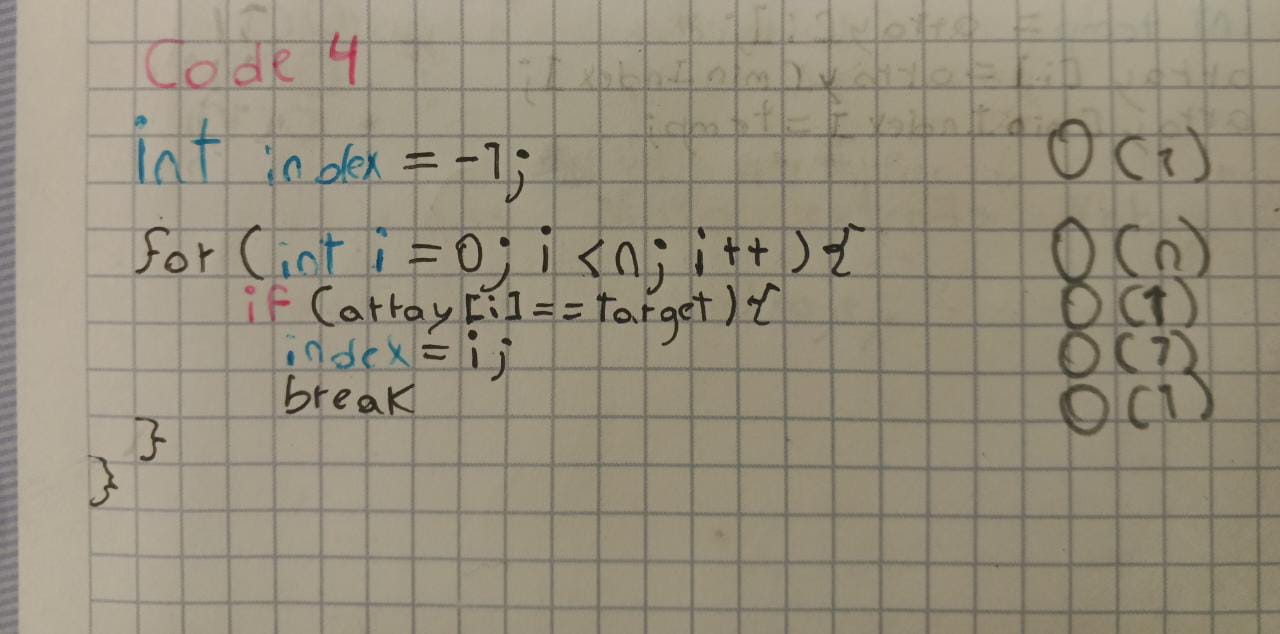 Code 4
int index = -1; O(1)
for (int i = 0; i < n; i++) { O(n)
if (array[i] == target) { O(1)
index = i; O(1)
break O(1)
}
}